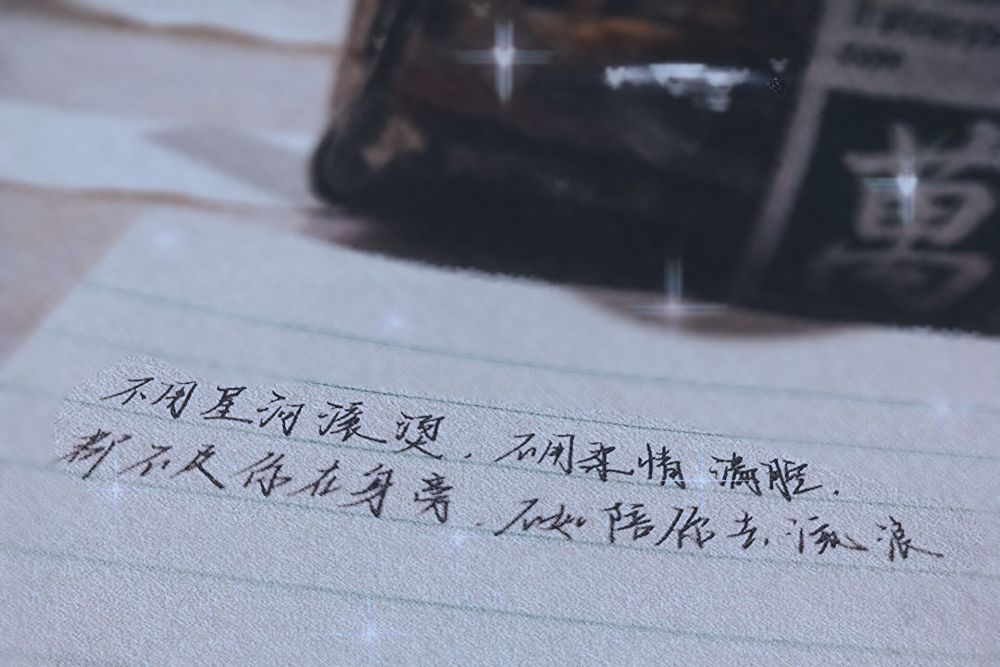 萬
不用星河滚烫.不用柔情满腔.
都不及你在身旁.不如陪你去流浪